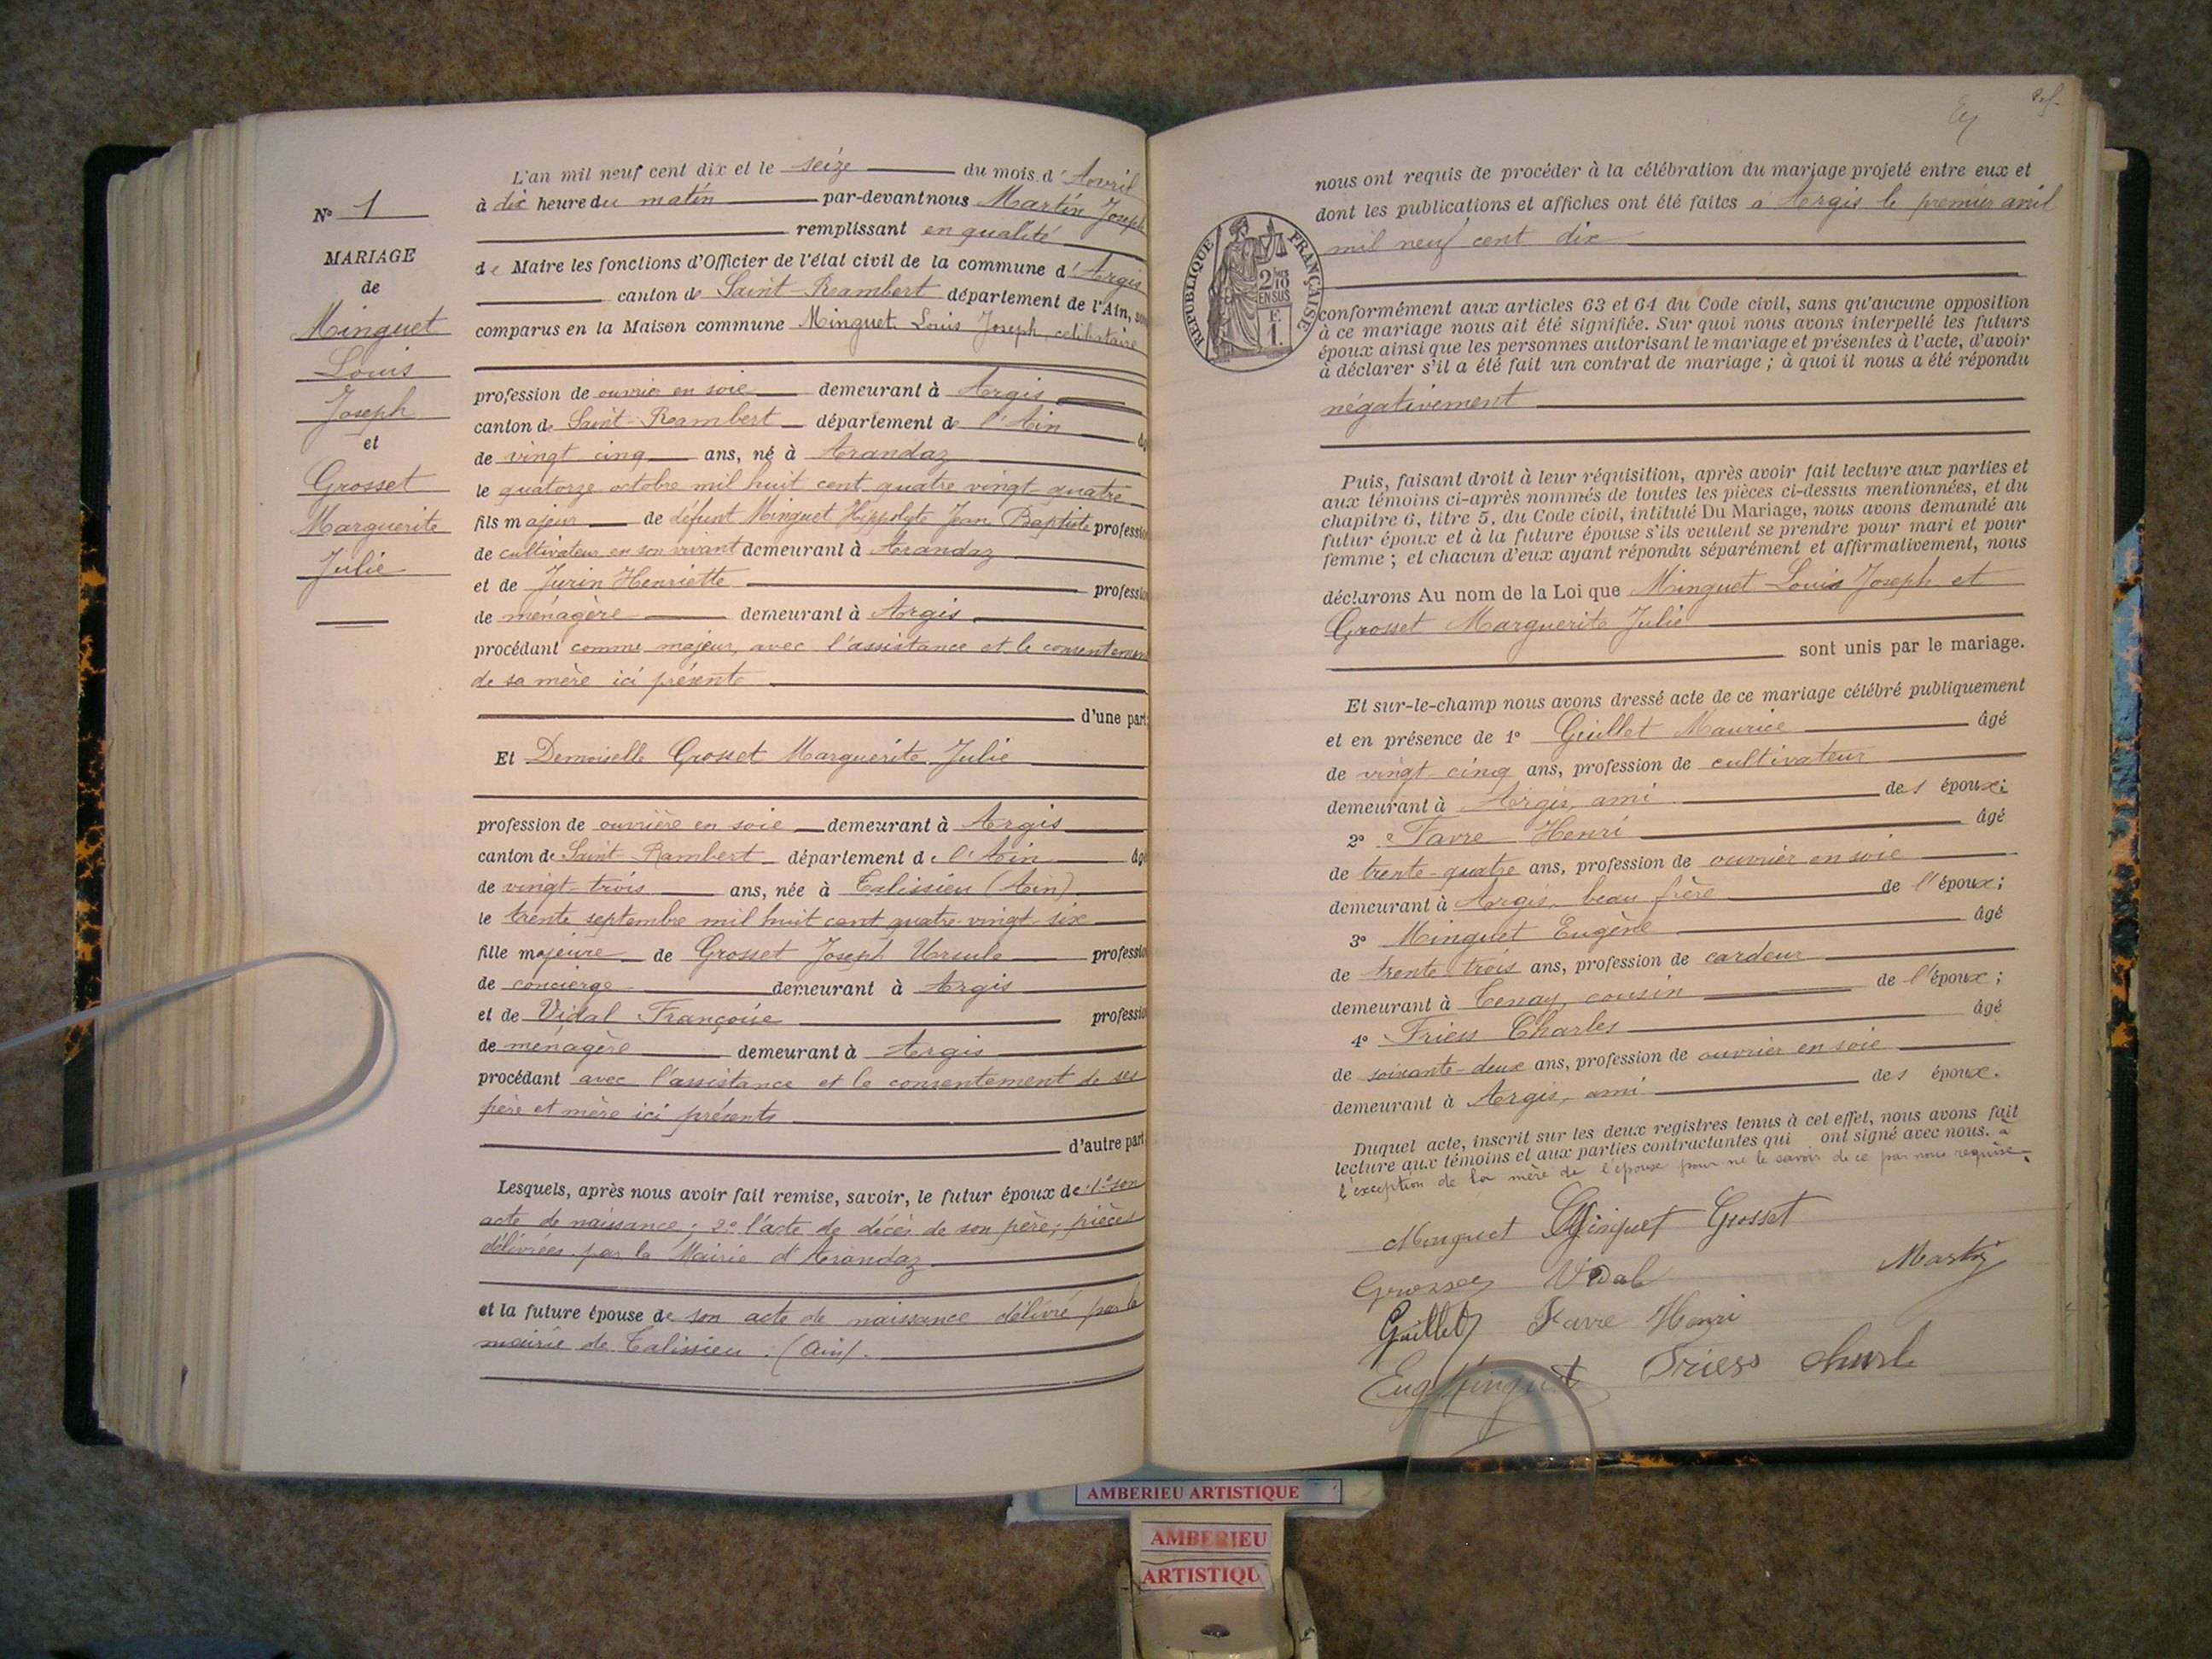 N° 1
MARIAGE
de
Minguet
Louis
Joseph
et
Grosset
Marguerite
Julie
L'an mil neuf cent dix et le seize du mois d'Avril
à dix heure du matin par-devant nous Martin Joseph
remplissant en qualité
de Maire les fonctions d'Officier de l'état civil de la commune d'Argis
canton de Saint-Rambert département de l'Ain, son
comparus en la Maison commune Minguet Louis Joseph, célibataire
profession de ouvrier en soie demeurant à Argis
canton de Saint-Rambert département de l'Ain âg
de vingt cinq ans, né à Arandaz
le quatorze octobre mil huit cent quatre vingt-quatre
fils majeur de défunt Minguet Hippolyte Jean Baptiste professio
de cultivateur en son vivant demeurant à Arandaz
et de Jurin Henriette professio
de ménagère demeurant à Argis
procédant comme majeur, avec l'assistance et le consentemen
de sa mère ici présente
d'une part;
Et Demoiselle Grosset Marguerite Julie
profession de ouvrière en soie demeurant à Argis
canton de Saint-Rambert département de l'Ain âgé
de vingt-trois ans, née à Talissieu (Ain)
le trente septembre mil huit cent quatre-vingt-six
fille majeure de Grosset Joseph Ursule professio
de concierge demeurant à Argis
et de Vidal Françoise professio
de ménagère demeurant à Argis
procédant avec l'assistance et le consentement de ses
père et mère ici présents
d'autre part
Lesquels, après nous avoir fait remise, savoir, le futur époux de : 1° son
acte de naissance ; 2° l'acte de décès de son père ; pièces
délivrées par la Mairie d'Arandaz
et la future épouse de son acte de naissance délivré par la
mairie de Talissieu (Ain).
nous ont requis de procéder à la célébration du mariage projeté entre eux et
dont les publications et affiches ont été faites à Argis le premier avril
mil neuf cent dix
RÉPUBLIQUE FRANÇAISE
2/10
EN SUS
F.
1.
conformément aux articles 63 et 64 du Code civil, sans qu'aucune opposition
à ce mariage nous ait été signifiée. Sur quoi nous avons interpellé les futurs
époux ainsi que les personnes autorisant le mariage et présentes à l'acte, d'avoir
à déclarer s'il a été fait un contrat de mariage ; à quoi il nous a été répondu
négativement
Puis, faisant droit à leur réquisition, après avoir fait lecture aux parties et
aux témoins ci-après nommés de toutes les pièces ci-dessus mentionnées, et du
chapitre 6, titre 5, du Code civil, intitulé Du Mariage, nous avons demandé au
futur époux et à la future épouse s'ils veulent se prendre pour mari et pour
femme ; et chacun d'eux ayant répondu séparément et affirmativement, nous
déclarons Au nom de la Loi que Minguet Louis Joseph et
Grosset Marguerite Julie
sont unis par le mariage.
Et sur-le-champ nous avons dressé acte de ce mariage célébré publiquement
et en présence de 1° Guillet Maurice âgé
de vingt-cinq ans, profession de cultivateur
demeurant à Argis, ami des époux;
2° Favre Henri âgé
de trente-quatre ans, profession de ouvrier en soie
demeurant à Argis, beau frère de l'époux;
3° Minguet Eugène âgé
de trente-trois ans, profession de cardeur
demeurant à Tenay, cousin de l'époux;
4° Friess Charles âgé
de soixante-deux ans, profession de ouvrier en soie
demeurant à Argis, ami des époux.
Duquel acte, inscrit sur les deux registres tenus à cet effet, nous avons fait
lecture aux témoins et aux parties contractantes qui ont signé avec nous. à
l'exception de la mère de l'épouse pour ne le savoir de ce par nous requise
Minguet Minguet Grosset
Vidal Martin
Guillet Favre Henri
Eug Minguet Friess Charl
AMBERIEU ARTISTIQUE
AMBERIEU
ARTISTIQU